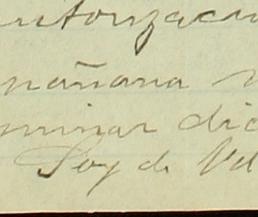 utorizaci
mañana
minar dic
Soy de Vd